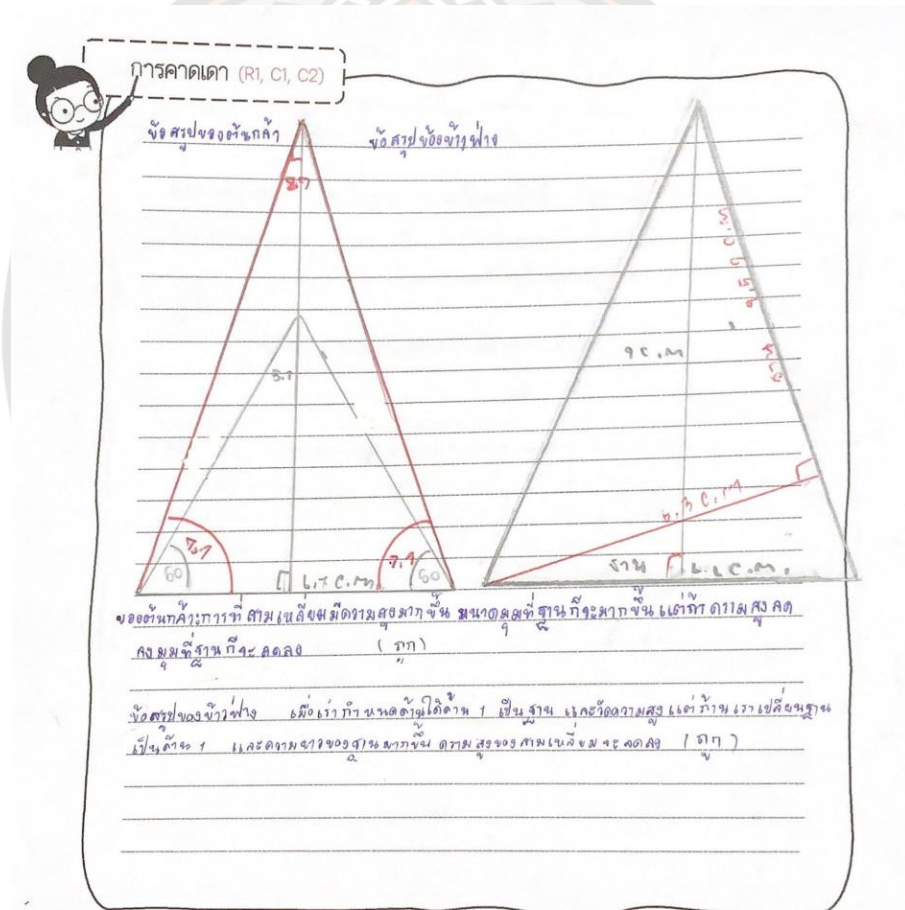 การคาดเดา (R1, C1, C2)
ข้อสรุปของต้นกล้า
ข้อสรุปของข้าวฟ่าง
8.7
5.1
9 c.m
6.3 c.m
ฐาน
60
60
c.m
c.m.
ของต้นกล้า:การที่สามเหลี่ยมมีความสูงมากขึ้น ขนาดมุมที่ฐานก็จะมากขึ้น แต่ถ้าความสูงลด
ลงมุมที่ฐานก็จะลดลง (ถูก)
ข้อสรุปของข้าวฟ่าง เมื่อเรากำหนดด้านใดด้าน 1 เป็นฐาน และวัดความสูง แต่ถ้าน เราเปลี่ยนฐาน
เป็นด้าน 1 และความยาวของฐานมากขึ้น ความสูงของสามเหลี่ยมจะลดลง (ถูก)